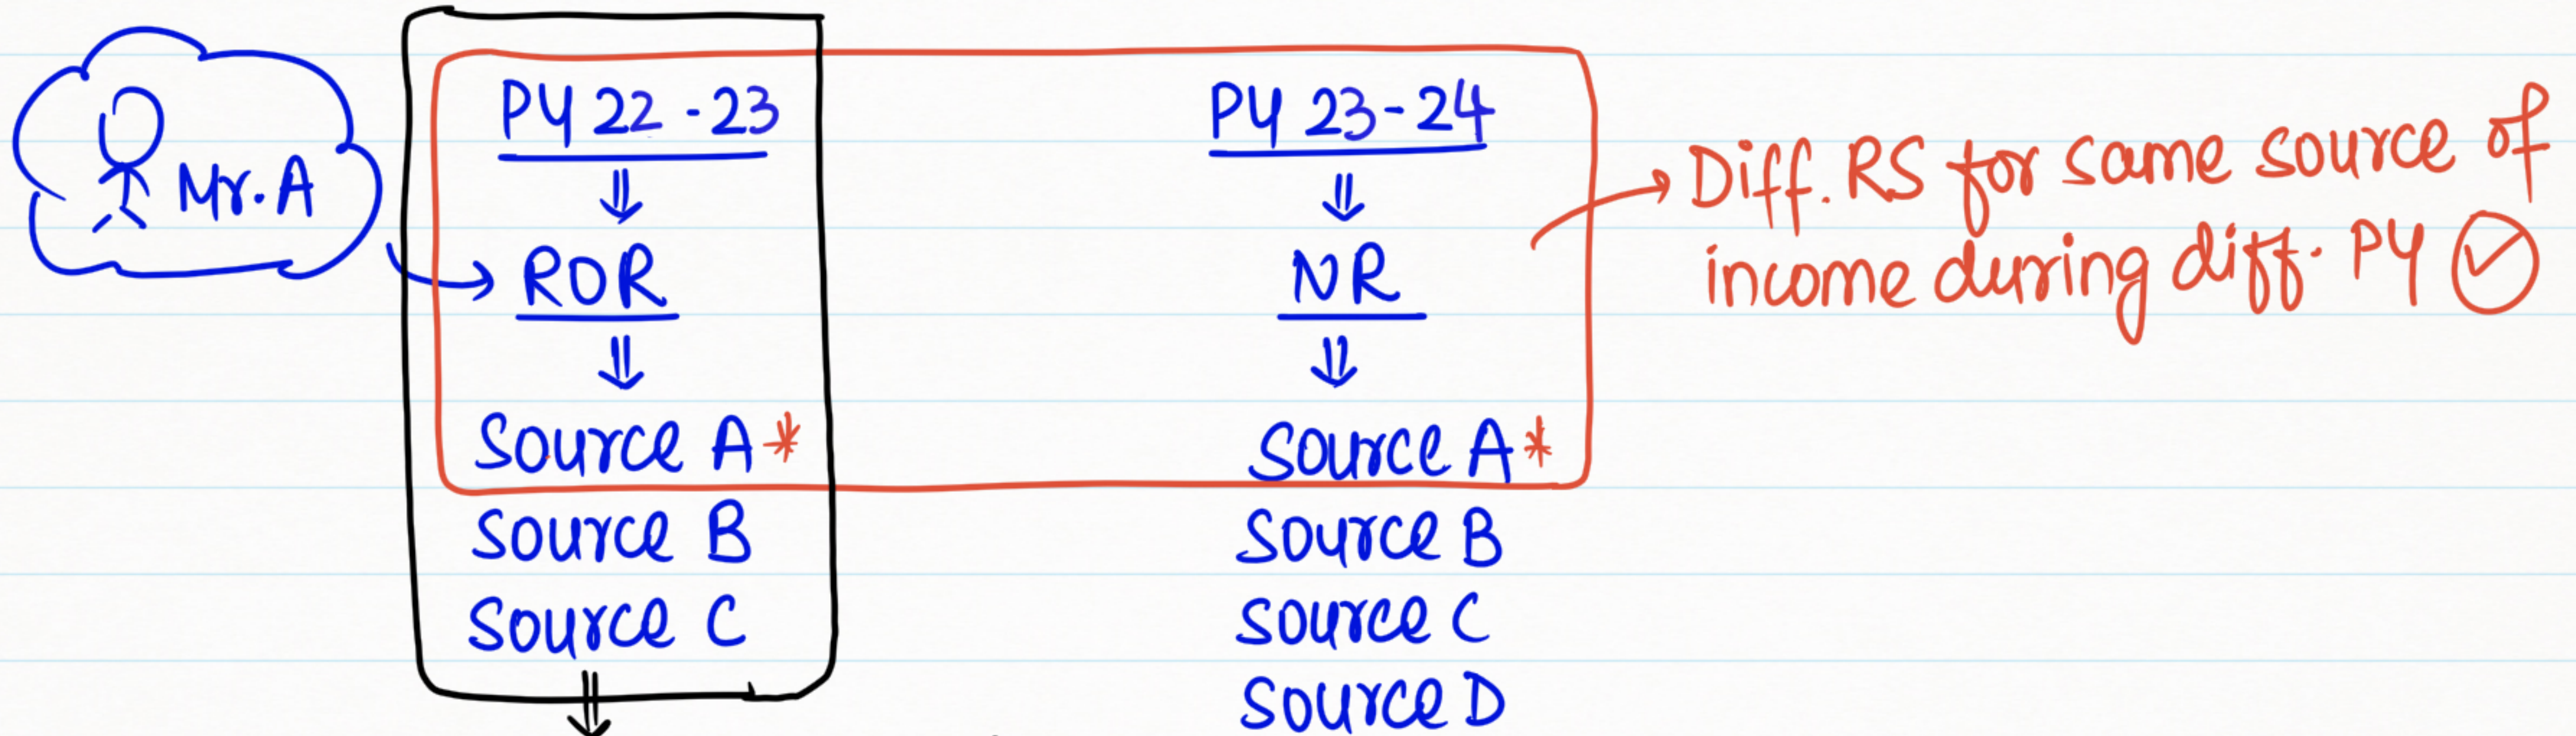 Mr. A
PY 22-23
ROR
Source A*
Source B
Source C
PY 23-24
NR
Source A*
Source B
Source C
Source D
Diff. RS for same source of
income during diff. PY